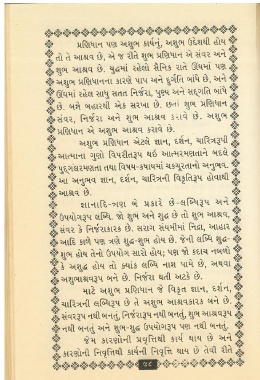 પ્રણિધાન પણ અશુભ કાર્યનું, અશુભ ઉદ્દેશથી હોય
તો તે આશ્રવ છે. એ જ રીતે શુભ પ્રણિધાન એ સંવર અને
શુભ આશ્રવ છે. યુદ્ધમાં રહેલો સૈનિક રાતે ઊંઘમાં પણ
અશુભ પ્રણિધાનના કારણે પાપ અને દુર્ગતિ બાંધે છે, અને
ઊંઘમાં રહેલ સાધુ સતત નિર્જરા, પુણ્ય અને સદ્ગતિ બાંધે
છે. બન્ને બહારથી એક સરખા છે. છતાં શુભ પ્રણિધાન
સંવર, નિર્જરા અને શુભ આશ્રવ કરાવે છે. અશુભ
પ્રણિધાન એ અશુભ આશ્રવ કરાવે છે.
અશુભ પ્રણિધાન એટલે જ્ઞાન, દર્શન, ચારિત્રરૂપી
આત્માના ગુણો વિપરીતરૂપ થઇ આત્મરમણતાને બદલે
પુદ્ગલરમણતા તથા વિષય-કષાયમાં ચકચૂરતાનો અનુભવ.
આ અનુભવ જ્ઞાન, દર્શન, ચારિત્રની વિકૃતિરૂપ હોવાથી
આશ્રવ છે.
જ્ઞાનાદિ-ત્રણ બે પ્રકારે છે-લબ્ધિરૂપ અને
ઉપયોગરૂપ લબ્ધિ. જો શુભ અને શુદ્ધ છે તો શુભ આશ્રવ,
સંવર કે નિર્જરાકારક છે. સરાગ સંયમીમાં નિદ્રા, આહાર
આદિ કાળે પણ ત્રણે શુદ્ધ-શુભ હોય છે. જેની લબ્ધિ શુદ્ધ-
શુભ હોય તેનો ઉપયોગ સારો હોય; પણ જો કદાચ નબળો
કે અશુદ્ધ હોય તો ક્યાંક લબ્ધિ નાશ પામે છે, અથવા
અશુભાશ્રવરૂપ બને છે. નિર્જરા થતી અટકે છે.
માટે અશુભ પ્રણિધાન જે વિકૃત જ્ઞાન, દર્શન,
ચારિત્રની લબ્ધિરૂપ છે તે અશુભ આશ્રવકારક બને છે.
સંવરરૂપ નથી બનતું, નિર્જરારૂપ નથી બનતું, શુભ આશ્રવરૂપ
નથી બનતું અને શુભ-શુદ્ધ ઉપયોગરૂપ પણ નથી બનતું.
જેમ કારણોની પ્રવૃત્તિથી કાર્ય થાય છે અને
કારણોની નિવૃત્તિથી કાર્યની નિવૃત્તિ થાય છે તેવી રીતે